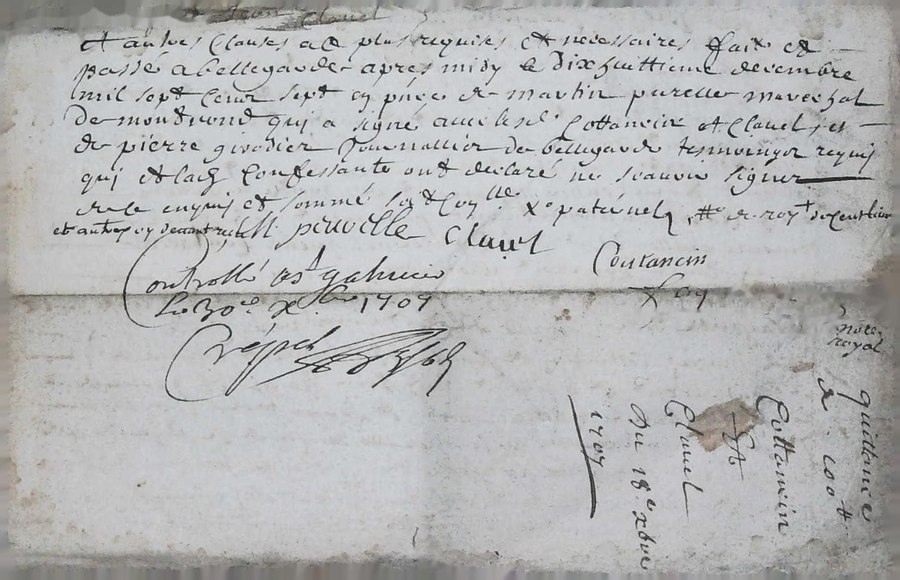 Jean Clauel
et autres clauses a ce plus requises et necessaires fait et
passé a bellegarde apres midy le dixhuittieme decembre
mil sept cent sept en pñce de martin peruelle mareschal
De mondrond qui a signé auec lesd Cottancin et Clauel, et
de pierre girodier Journallier de bellegarde tesmoingz requis
qui et lad Confessante ont declaré ne scauoir signer
de ce enquis et sommé
peruelle Clauel Coutancin
Controllé a st galmier
le 30e xbre 1707
notre
royal
quittance
de 100 tt
Cottancin
Clauel
Du 18e xbre
1707